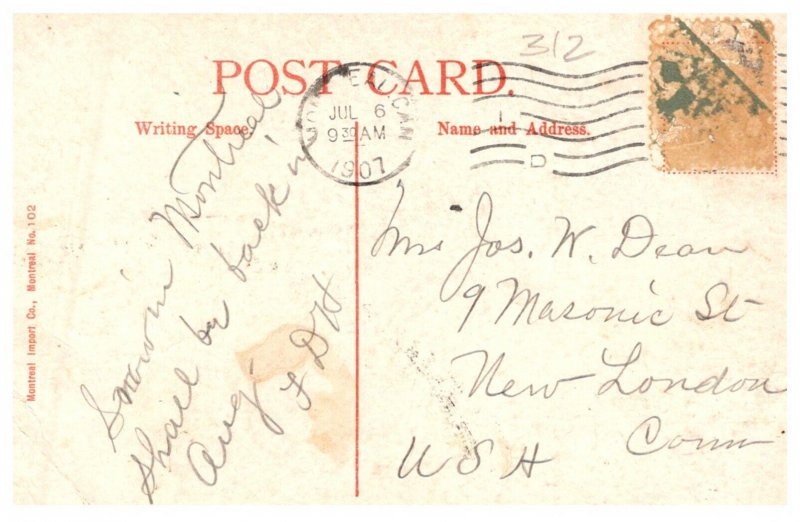 312
POST CARD.
MONTREAL, CAN.
JUL 6
9 30 AM
1907
1
D
Writing Space.
Name and Address.
Montreal
Shall be back in
Aug.
F D H
Jos. W. Dean
9 Masonic St
New London
Conn
U S A
Montreal Import Co., Montreal No. 102